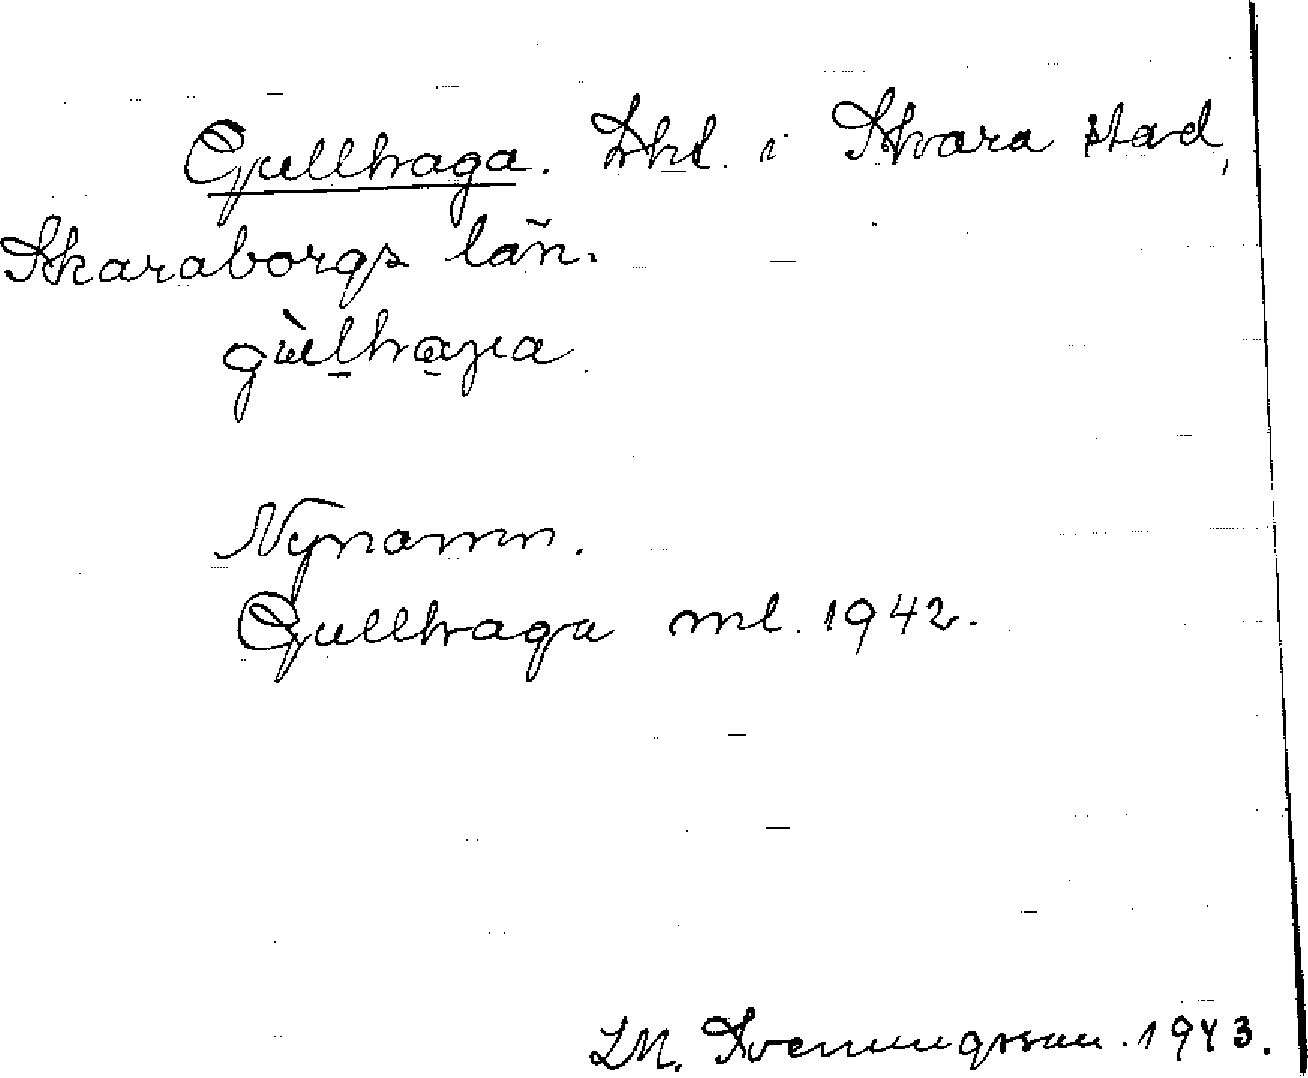 Gullhaga. Lht. i Skara stad,
Skaraborgs län.
gùlhaga
Nynamn.
Gullhaga ml. 1942.
I.M. Svenungsson. 1943.